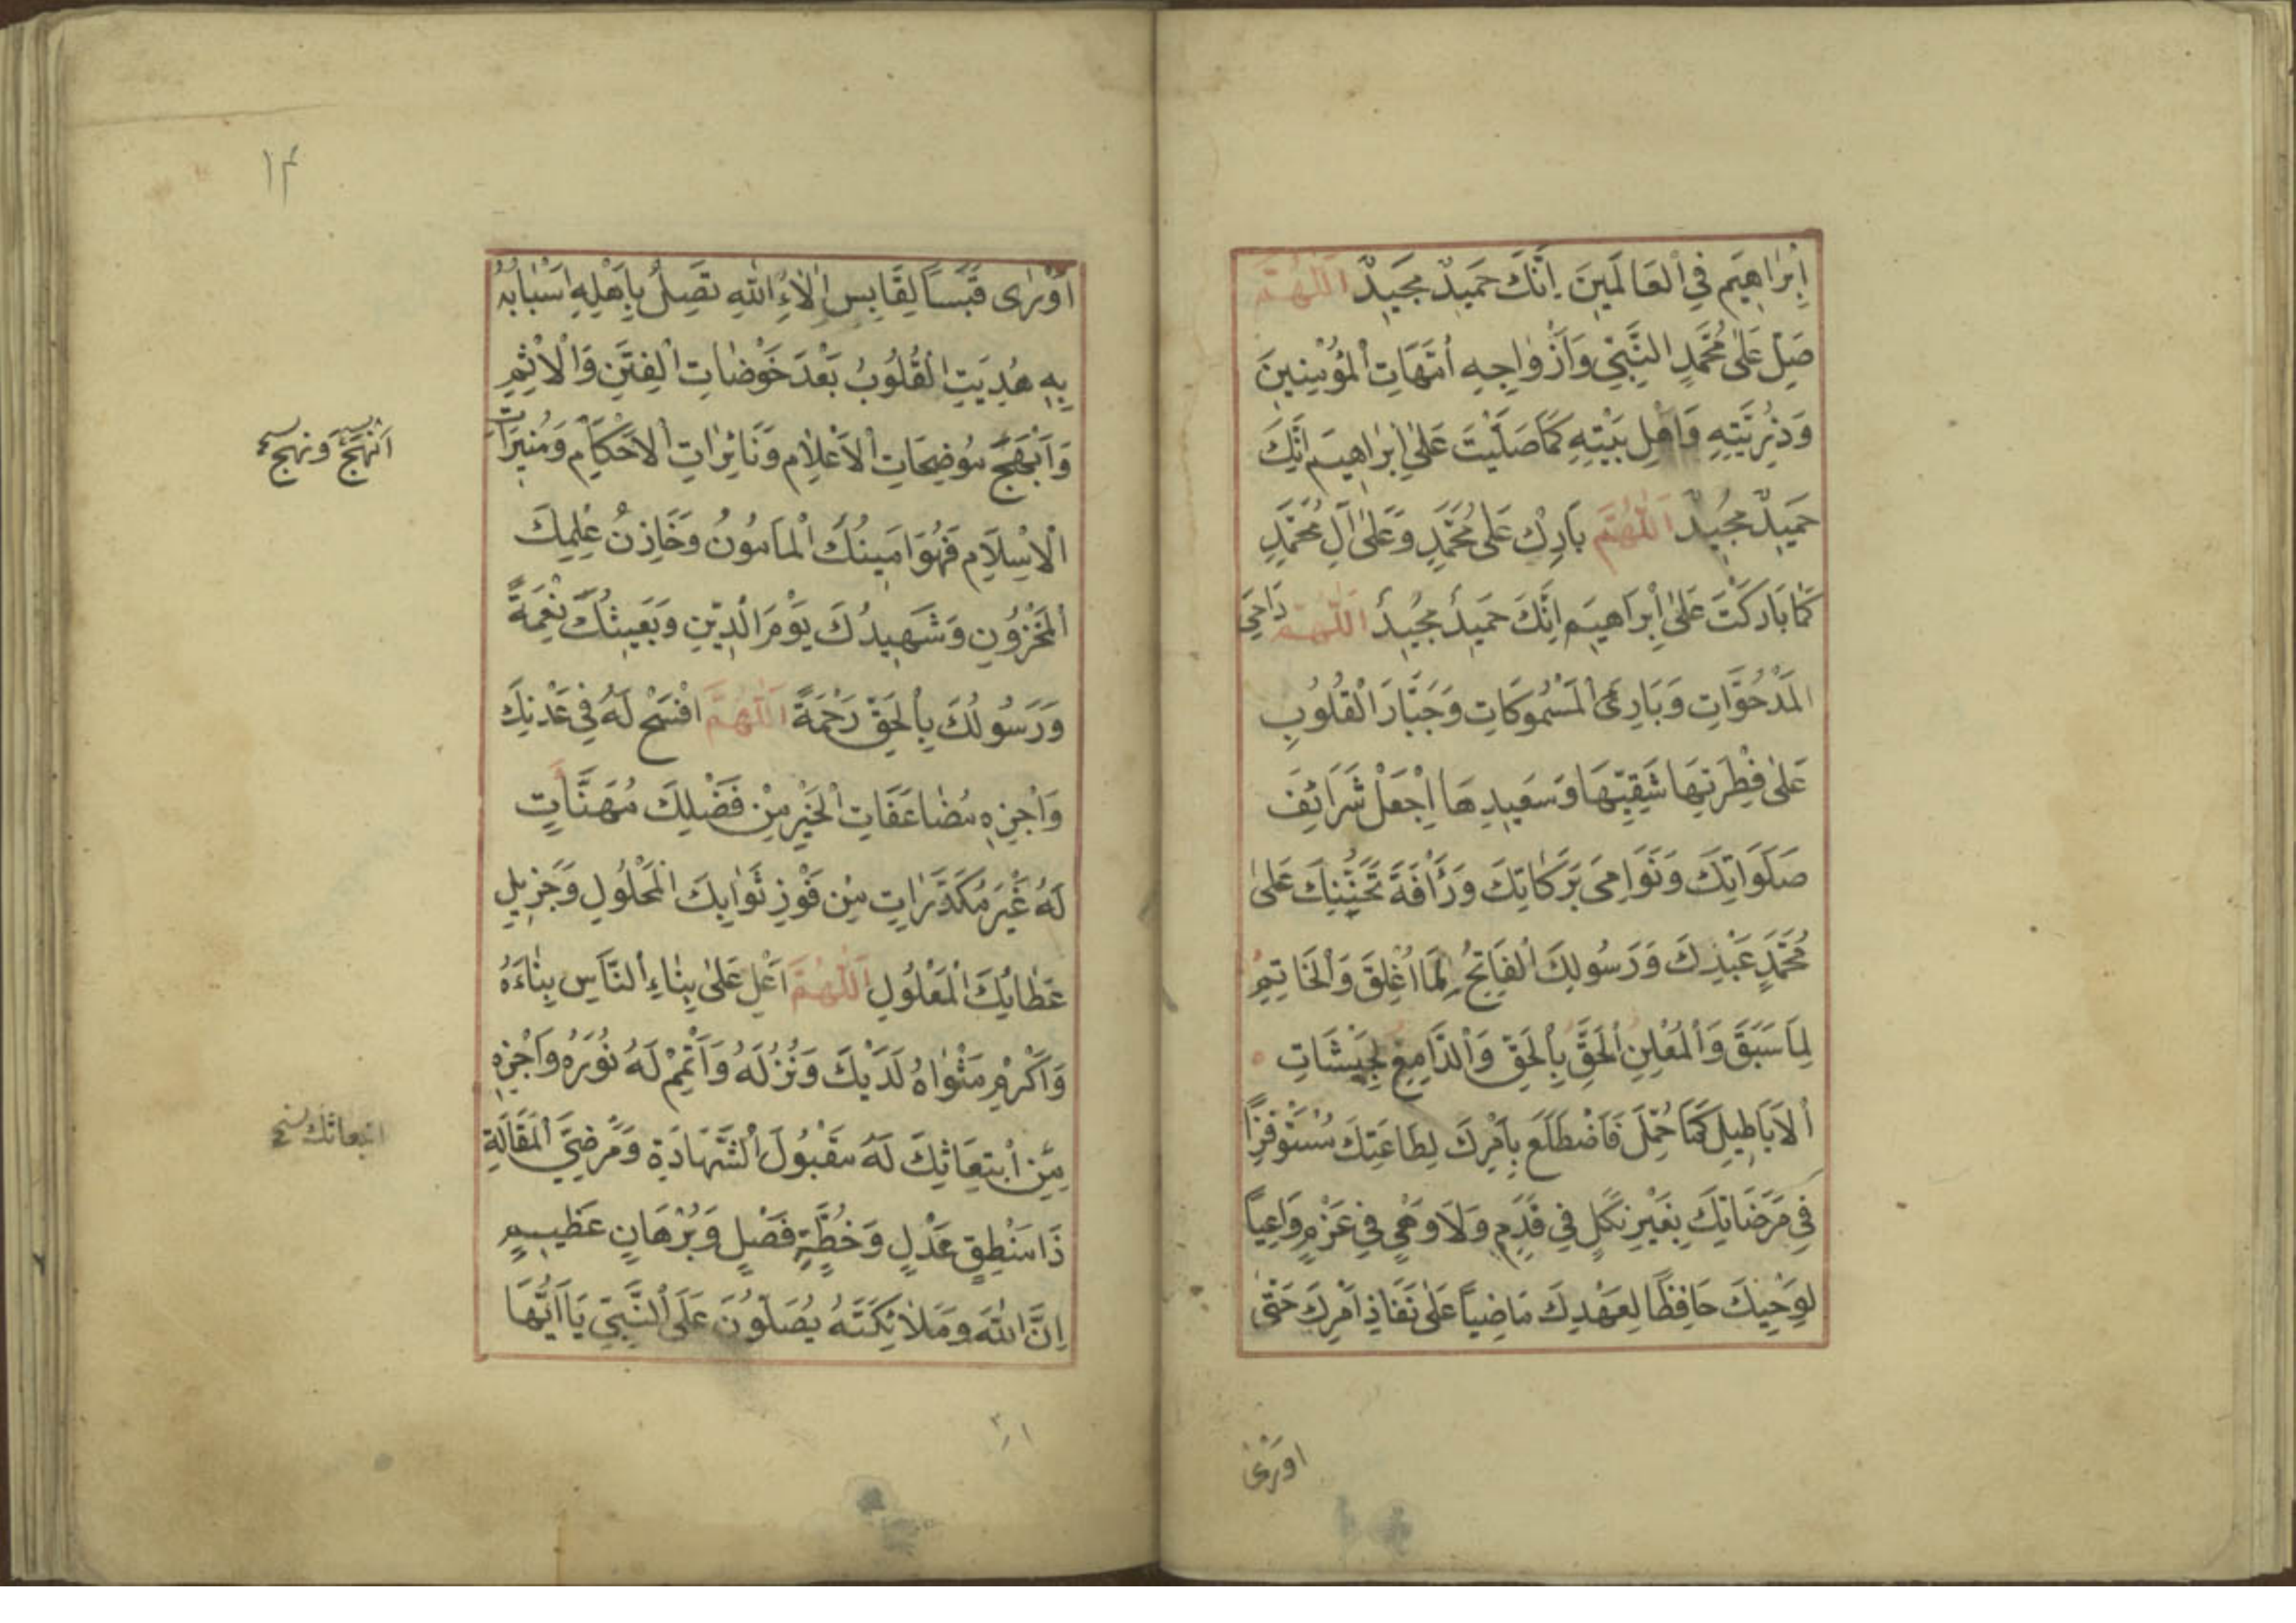 اِبْرَاهِيَم فِي الْعَالَمِينَ اِنَّكَ حَمِيدٌ مَجِيدٌ اَللّٰهُمَّ
صَلِّ عَلٰى مُحَمَّدٍ النَّبِيِّ وَاَزْوَاجِهِ اُمَّهَاتِ الْمُؤْمِنِينَ
وَذُرِّيَّتِهِ وَاَهْلِ بَيْتِهِ كَمَا صَلَّيْتَ عَلٰى اِبْرَاهِيمَ اِنَّكَ
حَمِيدٌ مَجِيدٌ اَللّٰهُمَّ بَارِكْ عَلٰى مُحَمَّدٍ وَعَلٰى اٰلِ مُحَمَّدٍ
كَمَا بَارَكْتَ عَلٰى اِبْرَاهِيمَ اِنَّكَ حَمِيدٌ مَجِيدٌ اَللّٰهُمَّ دَاحِيَ
الْمَدْحُوَّاتِ وَبَارِئَ الْمَسْمُوكَاتِ وَجَبَّارَ الْقُلُوبِ
عَلٰى فِطْرَتِهَا شَقِيِّهَا وَسَعِيدِهَا اِجْعَلْ شَرَائِفَ
صَلَوَاتِكَ وَنَوَامِىَ بَرَكَاتِكَ وَرَأْفَةَ تَحَنُّنِكَ عَلٰى
مُحَمَّدٍ عَبْدِكَ وَرَسُولِكَ الْفَاتِحِ لِمَا اُغْلِقَ وَالْخَاتِمِ
لِمَا سَبَقَ وَالْمُعْلِنِ الْحَقَّ بِالْحَقِّ وَالدَّامِغِ لِجَيْشَاتِ
الْاَبَاطِيلِ كَمَا حُمِّلَ فَاضْطَلَعَ بِاَمْرِكَ لِطَاعَتِكَ مُسْتَوْفِزًا
فِي مَرْضَاتِكَ بِغَيْرِ نَكَلٍ فِي قَدَمٍ وَلَا وَهْيٍ فِي عَزْمٍ وَاعِيًا
لِوَحْيِكَ حَافِظًا لِعَهْدِكَ مَاضِيًا عَلٰى نَفَاذِ اَمْرِكَ حَتّٰى
اورى
١٤
اَوْرٰى قَبَسًا لِقَابِسٍ اٰلَاءُ اللّٰهِ تَصِلُ بِاَهْلِهِ اَسْبَابُهُ
بِهِ هُدِيَتِ الْقُلُوبُ بَعْدَ خَوْضَاتِ الْفِتَنِ وَالْاِثْمِ
وَاَبْهَجَ مُوضِحَاتِ الْاَعْلَامِ وَنَائِرَاتِ الْاَحْكَامِ وَمُنِيرَاتِ
الْاِسْلَامِ فَهُوَ اَمِينُكَ الْمَأْمُونُ وَخَازِنُ عِلْمِكَ
الْمَخْزُونِ وَشَهِيدُكَ يَوْمَ الدِّينِ وَبَعِيثُكَ نِعْمَةً
وَرَسُولُكَ بِالْحَقِّ رَحْمَةً اَللّٰهُمَّ افْسَحْ لَهُ فِي عَدْنِكَ
وَاجْزِهِ مُضَاعَفَاتِ الْخَيْرِ مِنْ فَضْلِكَ مُهَنَّآتٍ
لَهُ غَيْرَ مُكَدَّرَاتٍ مِنْ فَوْزِ ثَوَابِكَ الْمَحْلُولِ وَجَزِيلِ
عَطَائِكَ الْمَعْلُولِ اَللّٰهُمَّ اَعْلِ عَلٰى بِنَاءِ النَّاسِ بِنَاءَهُ
وَاَكْرِمْ مَثْوَاهُ لَدَيْكَ وَنُزُلَهُ وَاَتْمِمْ لَهُ نُورَهُ وَاجْزِهِ
مِنِ ابْتِعَاثِكَ لَهُ مَقْبُولَ الشَّهَادَةِ وَمَرْضِيَّ الْمَقَالَةِ
ذَا مَنْطِقٍ عَدْلٍ وَخُطَّةٍ فَصْلٍ وَبُرْهَانٍ عَظِيمٍ
اِنَّ اللّٰهَ وَمَلَائِكَتَهُ يُصَلُّونَ عَلَى النَّبِيِّ يَا اَيُّهَا
اَنْهَجَ وَنَهَجَ
ابتعاثك